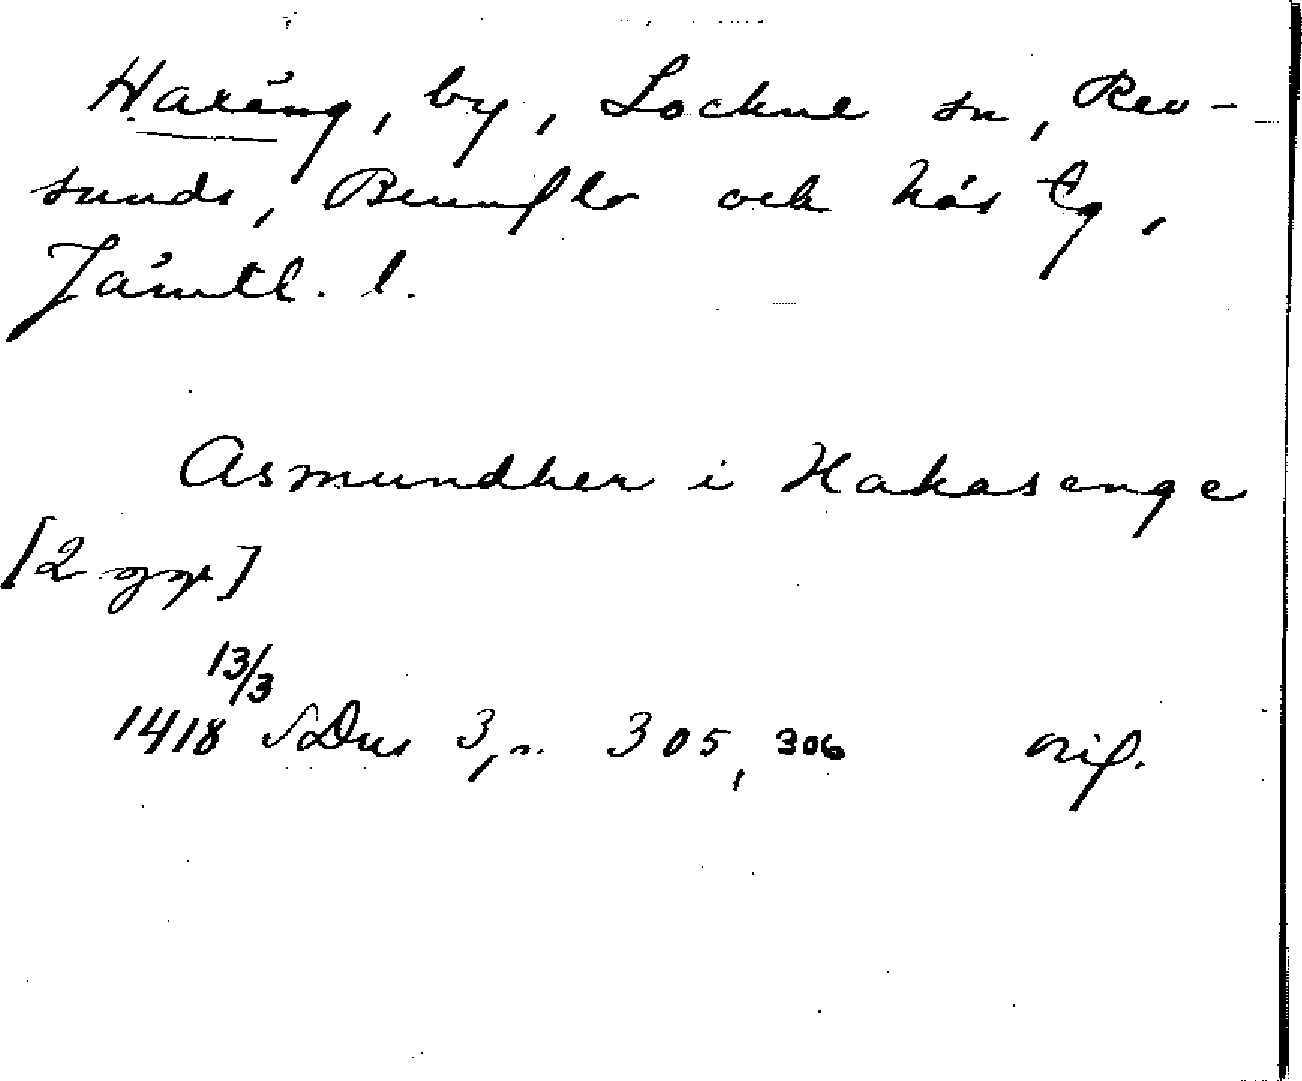 Haxäng, by, Lockne sn, Rev-
sunds, Brunflo och Näs tg,
Jämtl. l.
Asmundher i Hakasænge
[2 ggr]
13/3
1418 SDns 3, s. 305, 306 orig.